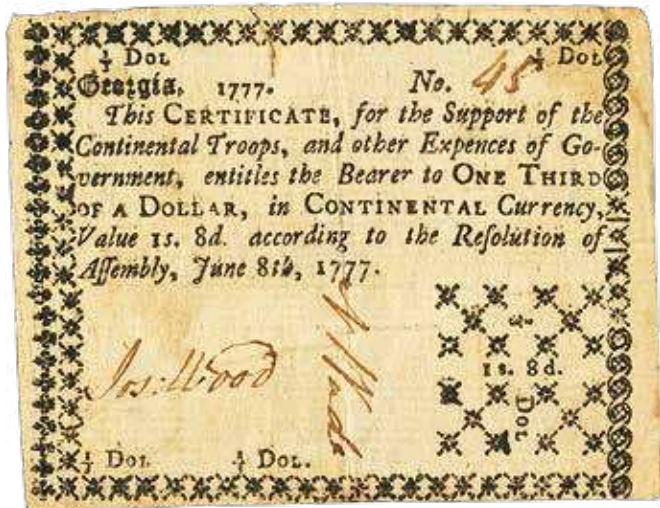 ⅓ Dol ⅓ Dol
Georgia, 1777. No. 45
This CERTIFICATE, for the Support of the
Continental Troops, and other Expences of Go-
vernment, entitles the Bearer to ONE THIRD
OF A DOLLAR, in CONTINENTAL Currency,
Value 1s. 8d. according to the Reſolution of
Aſſembly, June 8th, 1777.
Jos: Wood
⅓
1s. 8d.
Dol
⅓ Dol ⅓ Dol.